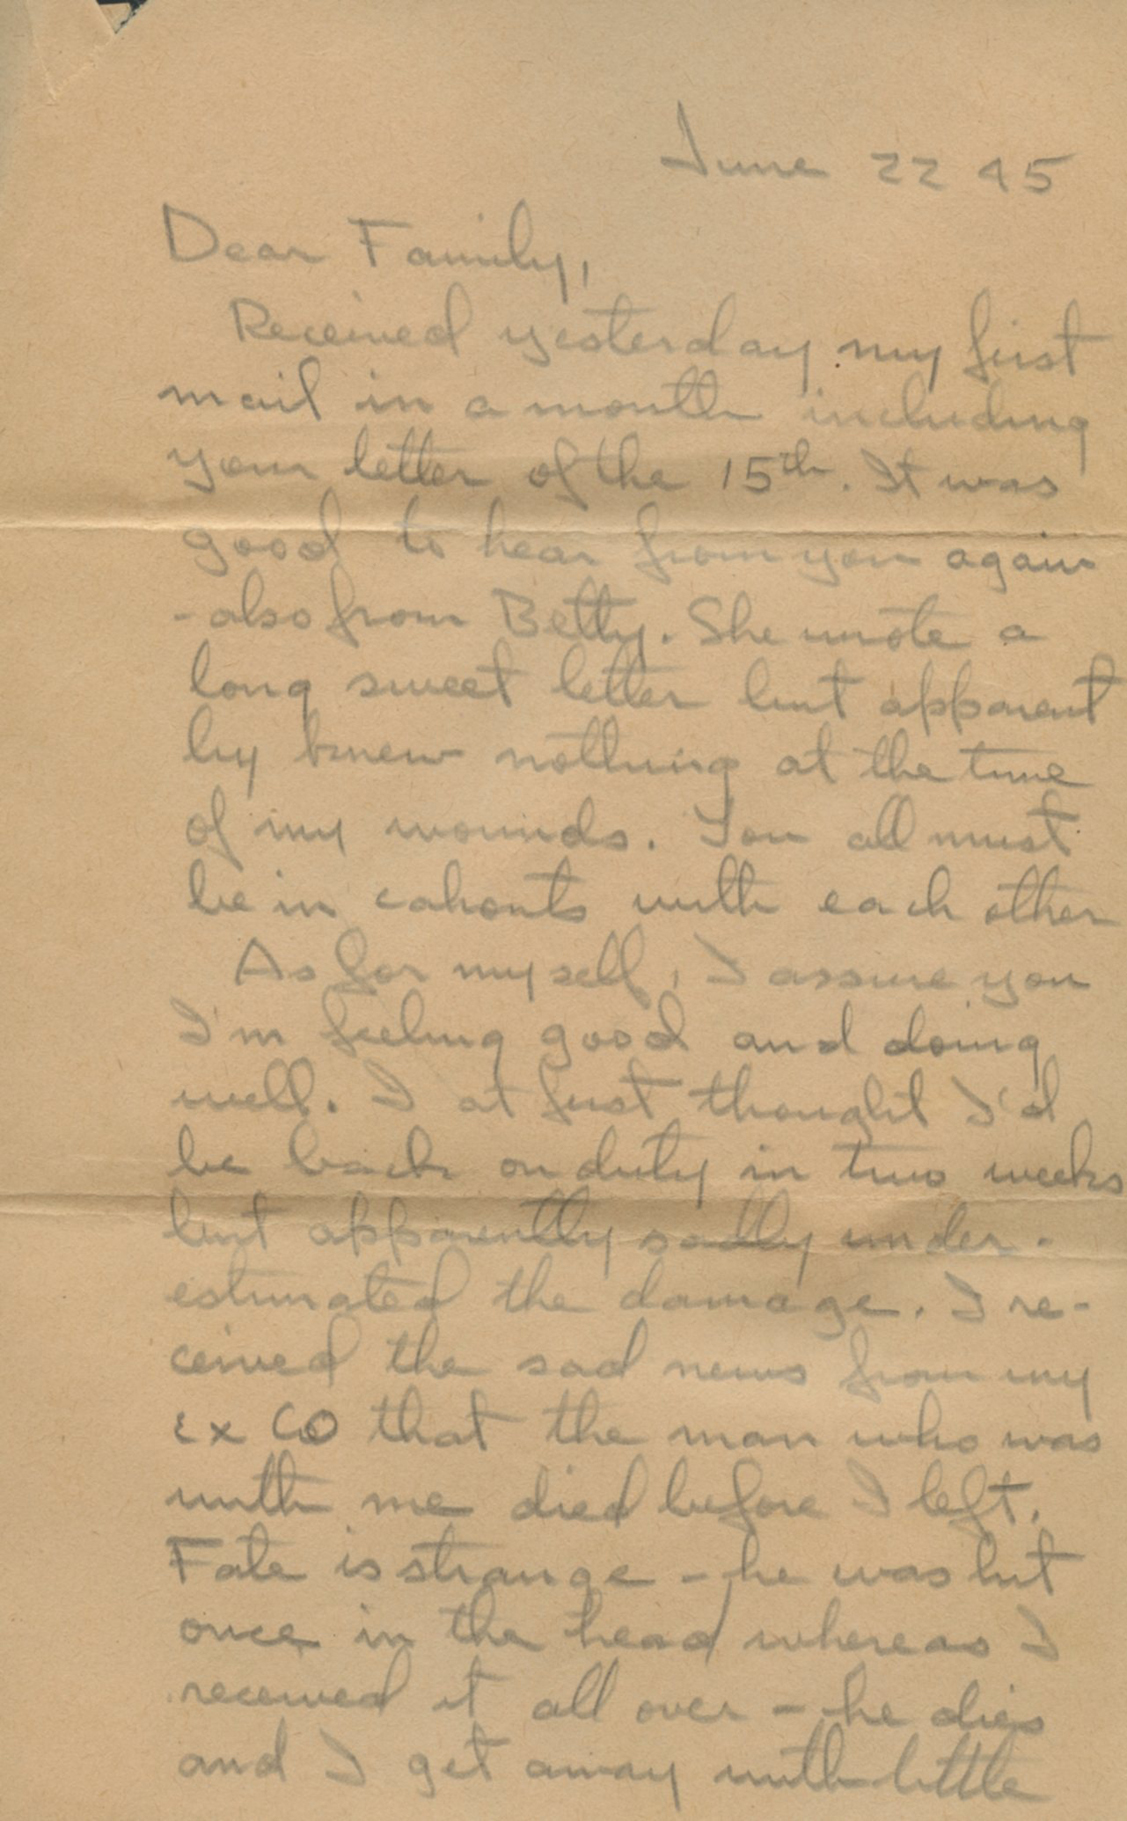 June 22 45
Dear Family,
Received yesterday my first
mail in a month including
your letter of the 15th. It was
good to hear from you again
- also from Betty. She wrote a
long sweet letter but apparent
ly knew nothing at the time
of my wounds. You all must
be in cahouts with each other
As for myself, I assure you
I'm feeling good and doing
well. I at first thought I'd
be back on duty in two weeks
but apparently sadly under-
estimated the damage. I re-
ceived the sad news from my
Ex CO that the man who was
with me died before I left.
Fate is strange - he was hit
once in the head whereas I
received it all over - he dies
and I get away with little